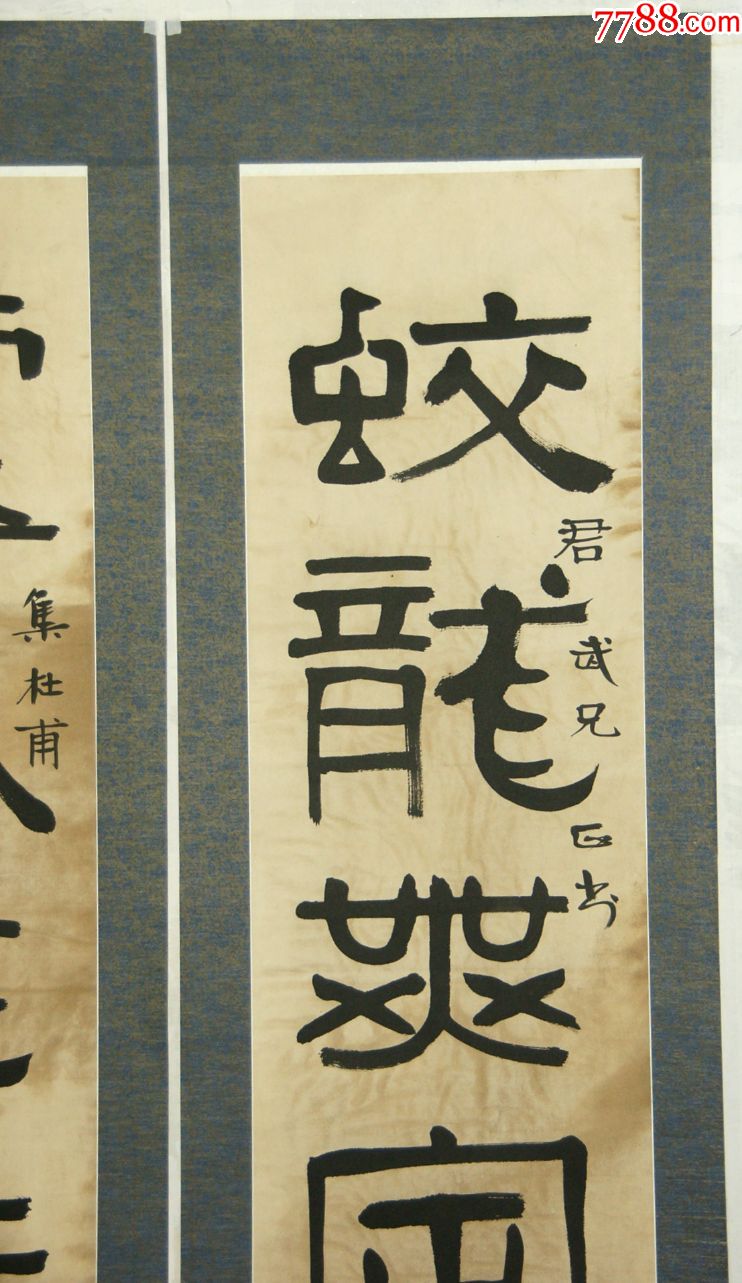 7788.com
蛟龍無定
君武兄正书
集杜甫